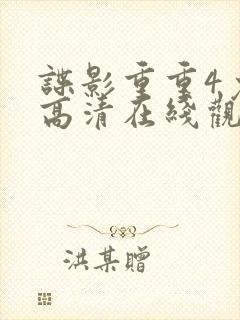 諜影重重4
高清在綫觀
洪某贈